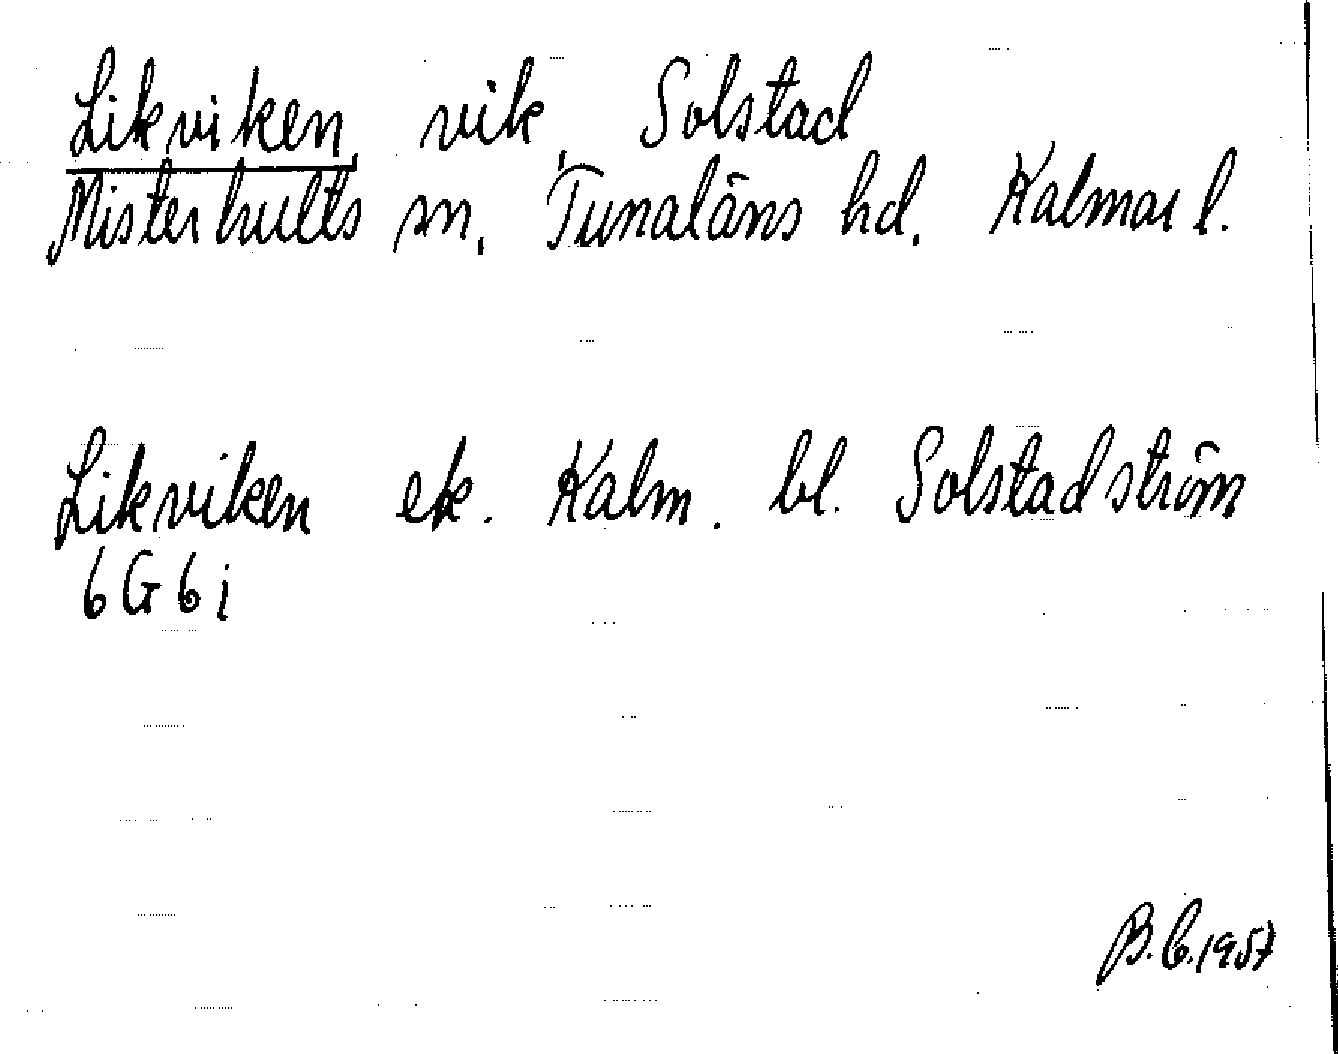 Likviken, vik, Solstad
Misterhults sn, Tunaläns hd. Kalmar l.
Likviken ek. Kalm. bl. Solstadström
6G6i
B.C.1957